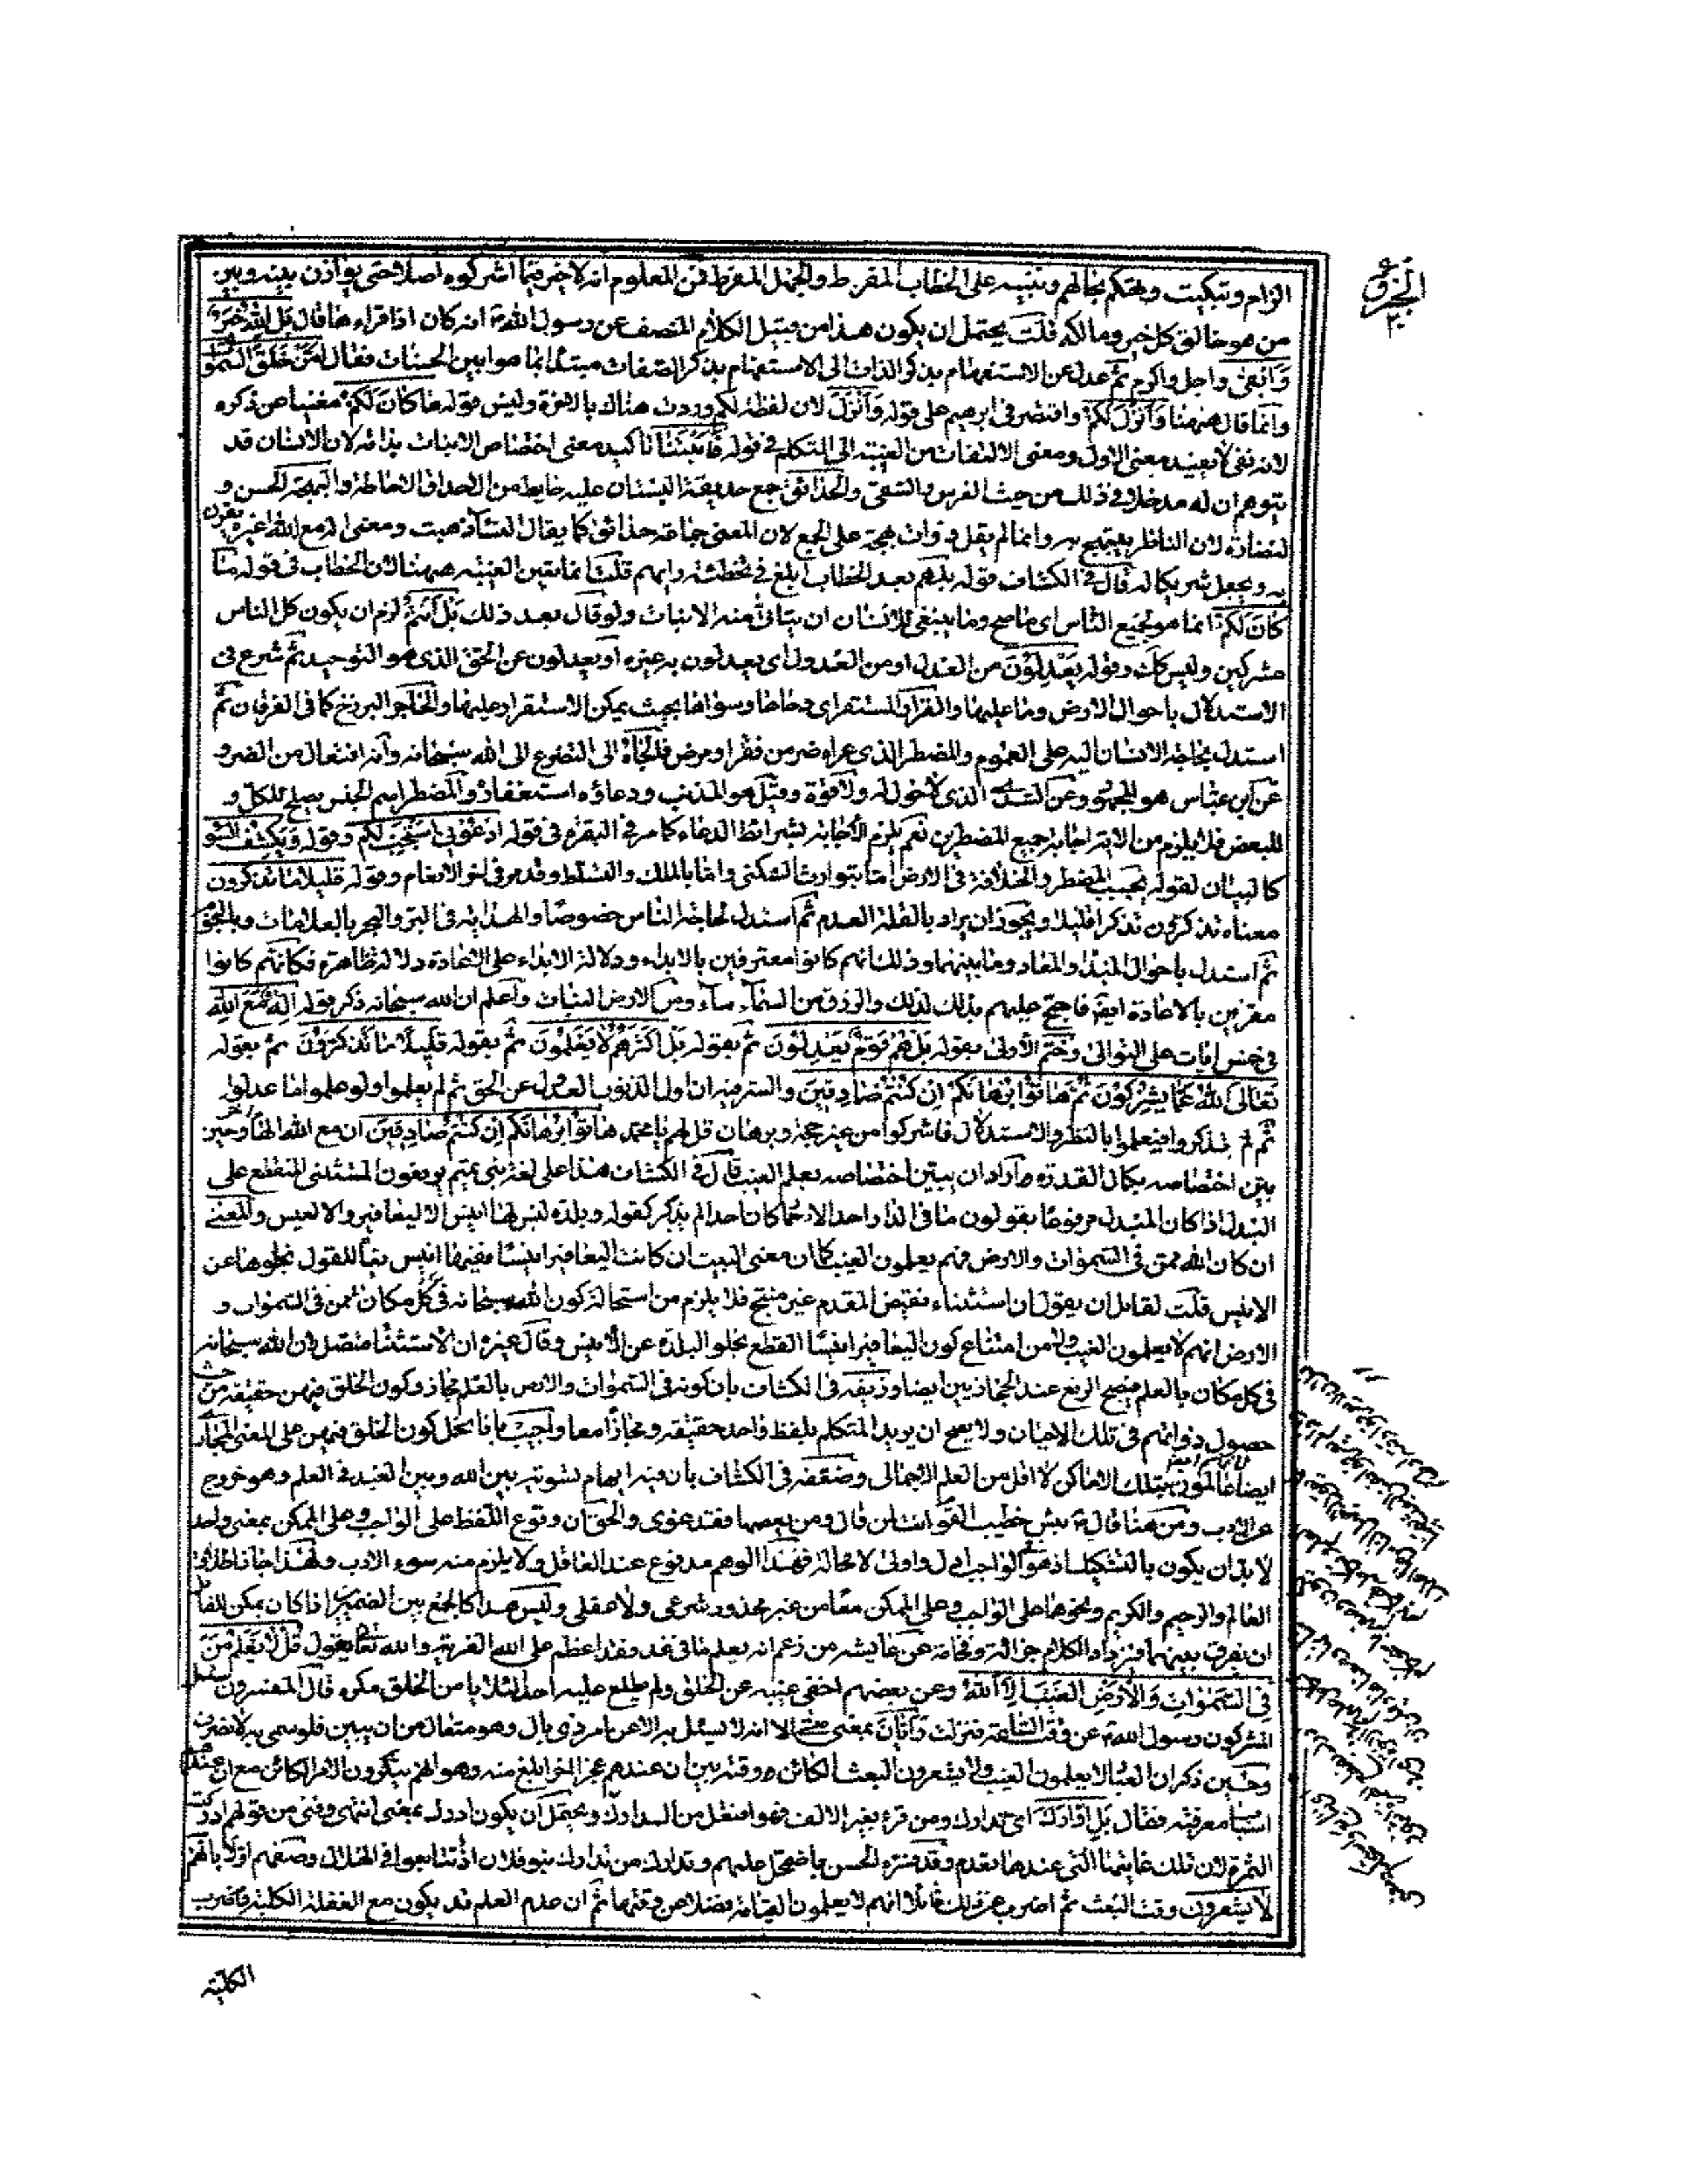 الجزو
٢٠
الزام وتبكيت وتهكم بحالهم وتنبيه على الخطاب المفرط والجهل المفرط فمن المعلوم انه لا خير فيما اشركوه اصلا حتى يوازن بينه وبين
من هو خالق كل خير ومالكه قلت يحتمل ان يكون هذا من قبيل الكلام المنصف عن رسول الله ص انه كان اذا قراءها قال بل الله خير
وابقى واجل واكرم ثم عدل عن الاستفهام بذكر الذات الى الاستفهام بذكر الصفات مبتدئا بما هو ابين الحسيات فقال امن خلق السموات
وانما قال ههنا وانزل لكم واقتصر في ابرهيم على قوله وانزل لان لفظة لكم وردت هناك بالاخرة وليس قوله ما كان لكم مغنيا عن ذكره
لانه نفى لا يفيد معنى الاول ومعنى الالتفات من الغيبة الى التكلم في قوله فانبتنا تاكيد معنى اختصاص الانبات بذاته لان الانسان قد
يتوهم ان له مدخلا في ذلك من حيث الغرس والسقى والحدائق جمع حديقة البستان عليه حايط من الاحداق الاحاطة والبهجة الحسن و
النضارة لان الناظر يبتهج به وانما لم يقل ذوات بهجة على الجمع لان المعنى جماعة حدائق كما يقال النساء ذهبت ومعنى اله مع الله اغيره يقرن
به ويجعل شريكا له قال في الكشاف قوله بل هم بعد الخطاب ابلغ في تخطئة رايهم قلت انما تعين الغيبة ههنا لان الخطاب في قوله ما
كان لكم انما هو لجميع الناس اى ما صح وما ينبغى للانسان ان يتاتى منه الانبات ولو قال بعد ذلك بل انتم لزم ان يكون كل الناس
مشركين وليس كك وقوله يعدلون من العدل او من العدول اى يعدلون به غيره او يعدلون عن الحق الذى هو التوحيد ثم شرع فى
الاستدلال باحوال الارض وما عليها والقرار المستقر اى دحاها وسواها بحيث يمكن الاستقرار عليها والحاجز البرزخ كما فى الفرقان ثم
استدل بحاجة الانسان اليه على العموم والمضطر الذى عراه ضر من فقر او مرض فالجأه الى التضرع الى الله سبحانه وانه افتعال من الضر و
عن ابن عباس هو المجهود وعن السدى الذى لا حول له ولا قوة وقيل هو المذنب ودعاؤه استغفاره والمضطر اسم الجنس يصلح للكل و
للبعض فلا يلزم من الاية اجابة جميع المضطرين نعم يلزم الاجابة بشرائط الدعاء كما مر في البقرة فى قوله ادعونى استجب لكم وقوله ويكشف السوء
كالبيان لقوله يجيب المضطر والخلافة فى الارض اما بتوارث السكنى واما بالملك والتسلط وقد مر فى اخر الانعام وقوله قليلا ما تذكرون
معناه تذكرون تذكرا قليلا ويجوز ان يراد بالقلة العدم ثم استدل لحاجة الناس خصوصا والهداية فى البر والبحر بالعلامات وبالنجوم
ثم استدل باحوال المبدا والمعاد وما بينهما وذلك انهم كانوا معترفين بالابداء ودلالة الابداء على الاعادة دلالة ظاهرة فكانهم كانوا
مقرين بالاعادة ايضا فاحتج عليهم بذلك لذلك والرزق من السماء ماء ومن الارض النبات واعلم ان الله سبحانه ذكر قوله اله مع الله
فى خمس ايات على التوالى وختم الاولى بقوله بل هم قوم يعدلون ثم بقوله بل اكثرهم لا يعلمون ثم بقوله قليلا ما تذكرون ثم بقوله
تعالى الله عما يشركون ثم هاتوا برهانكم ان كنتم صادقين والسر فيه ان اول الذنوب العدول عن الحق ثم لم يعلموا ولو علموا ما عدلوا
ثم لم يذكروا فيعلموا بالنظر والاستدلال فاشركوا من غير حجة وبرهان قل لهم يا محمد هاتوا برهانكم ان كنتم صادقين ان مع الله الها اخر وحين
بين اختصاصه بكمال القدرة اراد ان يبين اختصاصه بعلم الغيب قال فى الكشاف هذا على لغة بنى تميم يرفعون المستثنى المنقطع على
البدل اذا كان المبدل مرفوعا يقولون ما فى الدار احد الا حمار كان احدا لم يذكر كقوله وبلدة ليس بها انيس الا اليعافير والا العيس والمعنى
ان كان الله ممن فى السموات والارض فهم يعلمون الغيب كما ان معنى البيت ان كانت اليعافير انيسا ففيها انيس بتا للقول بخلوها عن
الانيس قلت لقائل ان يقول ان استثناء نقيض المقدم غير منتج فلا يلزم من استحالة كون الله سبحانه فى كل مكان ممن فى السموات و
الارض انهم لا يعلمون الغيب ولا من امتناع كون اليعافير انيسا القطع بخلو البلدة عن الانيس وقال غيره ان الاستثناء متصل لان الله سبحانه
فى كل مكان بالعلم فيصح الرفع عند الحجازيين ايضا وزيفه فى الكشاف بان كونه فى السموات والارض بالعلم مجاز وكون الخلق فيهن حقيقة من حيث
حصول ذواتهم فى تلك الاحيان ولا يصح ان يريد المتكلم بلفظ واحد حقيقة ومجازا معا واجيب بانا نحمل كون الخلق فيهن على المعنى المجازى
ايضا لانهم عالمون بتلك الاماكن لا اقل من العلم الاجمالى وضعفه فى الكشاف بان فيه ايهام تسوية بين الله وبين العبد فى العلم وهو خروج
عن الادب ومن هنا قال ص بئس خطيب القوم انت لمن قال ومن يعصهما فقد غوى والحق ان وقوع اللفظ على الواجب وعلى الممكن بمعنى واحد
لا بد ان يكون بالتشكيك اذ هو فى الواجب ادل واولى لا محالة فهذا الوهم مدفوع عند العاقل ولا يلزم منه سوء الادب ولهذا جاز اطلاق
العالم والرحيم والكريم ونحوها على الواجب وعلى الممكن معا من غير محذور شرعى ولا عقلى وليس هذا كالجمع بين الضميرين اذا كان يمكن للقائل
ان يفرق بينهما فيزداد الكلام جزالة وفخامة عن عايشه من زعم انه يعلم ما فى غد فقد اعظم على الله الفرية والله تعالى يقول قل لا يعلم من
فى السموات والارض الغيب الا الله وعن بعضهم اخفى غيبه عن الخلق ولم يطلع عليه احدا لئلا يامن الخلق مكره قال المفسرون سئل
المشركون رسول الله ص عن وقت الساعة فنزلت وايان بمعنى متى الا انه لا يسئل به الا عن امر ذى بال وهو فعال من ان يئين فلو سمى به لانصرف
وحين ذكر ان العباد لا يعلمون الغيب ولا يشعرون البعث الكائن ووقته بين ان عندهم عجزا اخر ابلغ منه وهو انهم ينكرون الامر الكائن مع ان عندهم
اسباب معرفته فقال بل ادارك اى تدارك ومن قرء بغير الالف فهو افتعل من الدرك ويحتمل ان يكون ادرك بمعنى انتهى وفنى من قولهم ادركت
الثمرة لان تلك غايتها التى عندها تعدم وقد فسره الحسن باضمحل علمهم وتدارك من تدارك بنو فلان اذا تتابعوا فى الهلاك وصفهم اولا بانهم
لا يشعرون وقت البعث ثم اضرب عن ذلك قائلا انهم لا يعلمون القيامة فضلا عن وقتها ثم ان عدم العلم قد يكون مع الغفلة الكلية فاضرب
الكلية